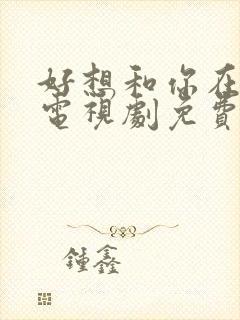 好想和你在
電視劇免費
鍾鑫